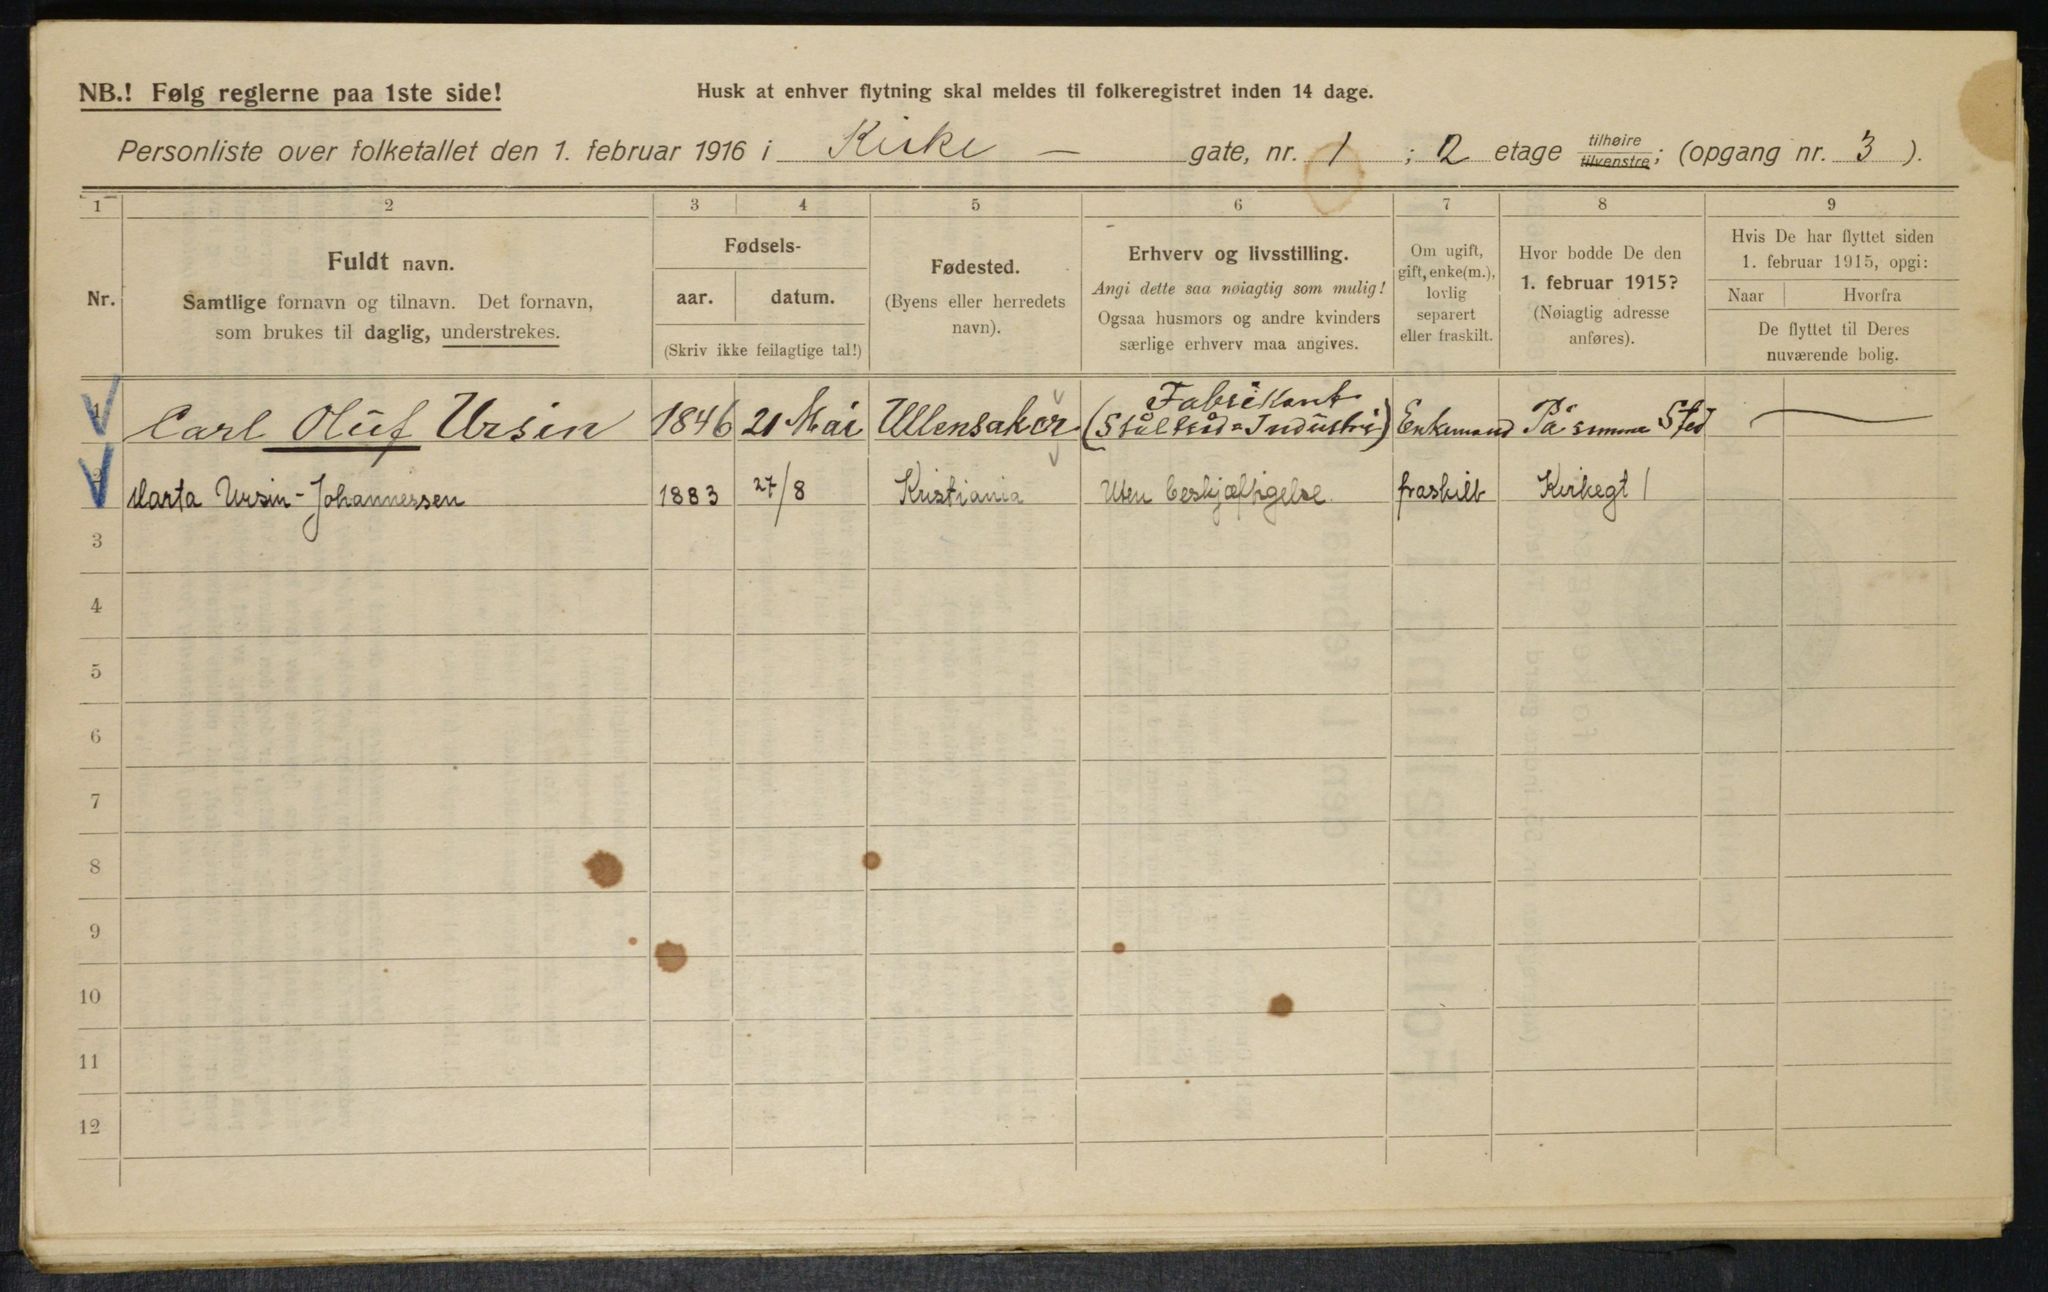 NB.! Følg reglerne paa 1ste side! Husk at enhver flytning skal meldes til folkeregistret inden 14 dage.
Personliste over folketallet den 1. februar 1916 i Kirke — gate, nr. 1 ; 2 etage tilhøire tilvenstre; (opgang nr. 3 ).
1 2 3 4 5 6 7 8 9
Nr.
Fuldt navn.
Samtlige fornavn og tilnavn. Det fornavn,
som brukes til daglig, understrekes.
Fødsels-
aar. datum.
(Skriv ikke feilagtige tal!)
Fødested.
(Byens eller herredets
navn).
Erhverv og livsstilling.
Angi dette saa nøiagtig som mulig!
Ogsaa husmors og andre kvinders
særlige erhverv maa angives.
Om ugift,
gift, enke(m.),
lovlig
separert
eller fraskilt.
Hvor bodde De den
1. februar 1915?
(Nøiagtig adresse
anføres).
Hvis De har flyttet siden
1. februar 1915, opgi:
Naar Hvorfra
De flyttet til Deres
nuværende bolig.
1 Carl Oluf Ursin 1846 21 Mai Ullensaker Fabrikant (Ståltråd=Industri) Enkemand På samme Sted —
2 Marta Ursin-Johannessen 1883 27/8 Kristiania Uten beskjæftigelse. fraskilt Kirkegt 1
3
4
5
6
7
8
9
10
11
12